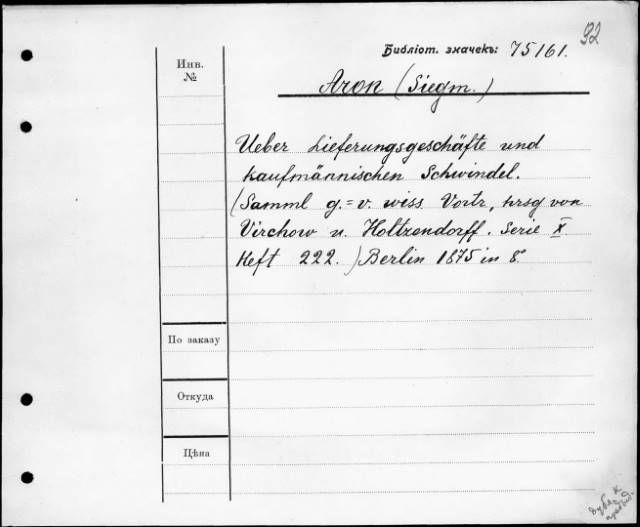 92
Библіот. значекъ: 75161.
Инв.
№
Aron (Siegm.)
Ueber Lieferungsgeschäfte und
kaufmännischen Schwindel.
(Samml g.=v. wiss. Vortr., hrsg von
Virchow u. Holtzendorff. Serie X.
Heft 222.) Berlin 1875 in 8°.
По заказу
Откуда
Цѣна